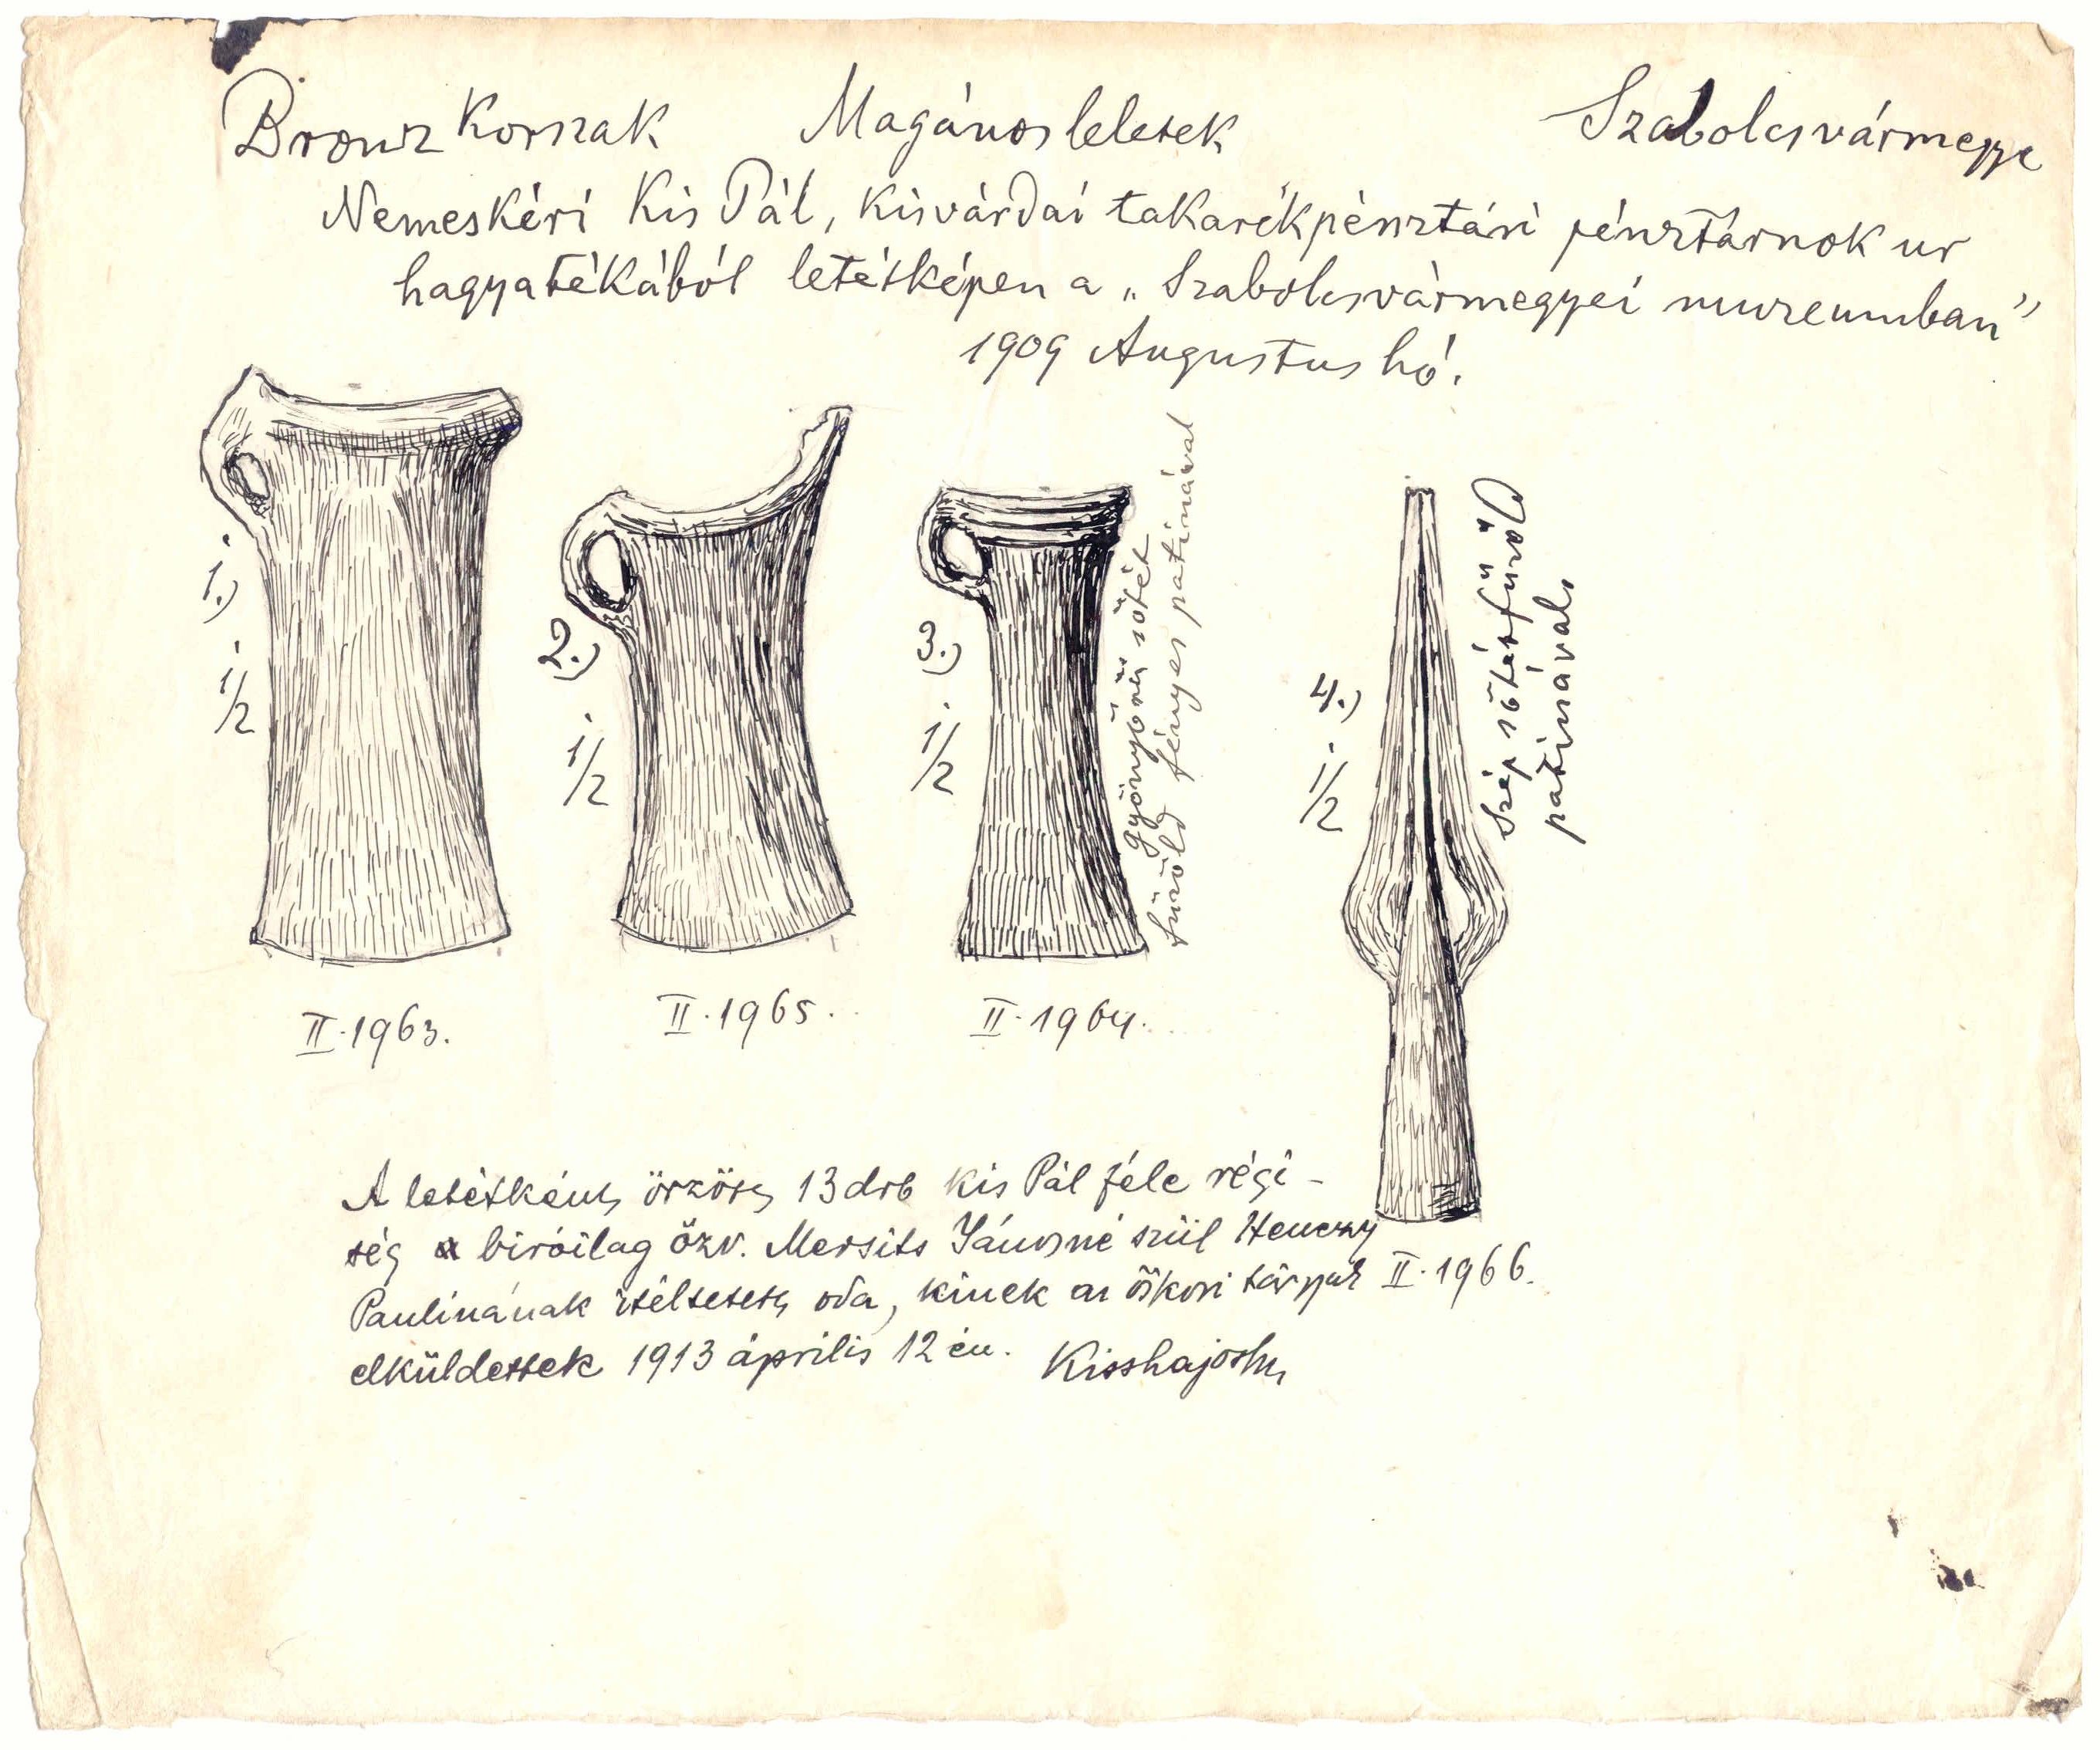 Bronz Korszak Magános leletek Szabolcsvármegye
Nemeskéri Kis Pál, kisvárdai takarékpénztári pénztárnok ur
hagyatékából letétképen a „Szabolcsvármegyei muzeumban”
1909 Augustus hó.
1.)
1/2
II.1963.
2.)
1/2
II.1965.
3.)
1/2
gyönyörü sötét
füzöld fényes patinával
II.1964.
4.)
1/2
Szép sötétfüzöld
patinával
A letétként őrzött 13 drb Kis Pál féle régi-
ség a biróilag özv. Mersits Jánosné szül Henczy
Paulinának itéltetett oda, kinek az őskori tárgyak
elküldettek 1913 április 12 én. Kisshajoshn
II.1966.